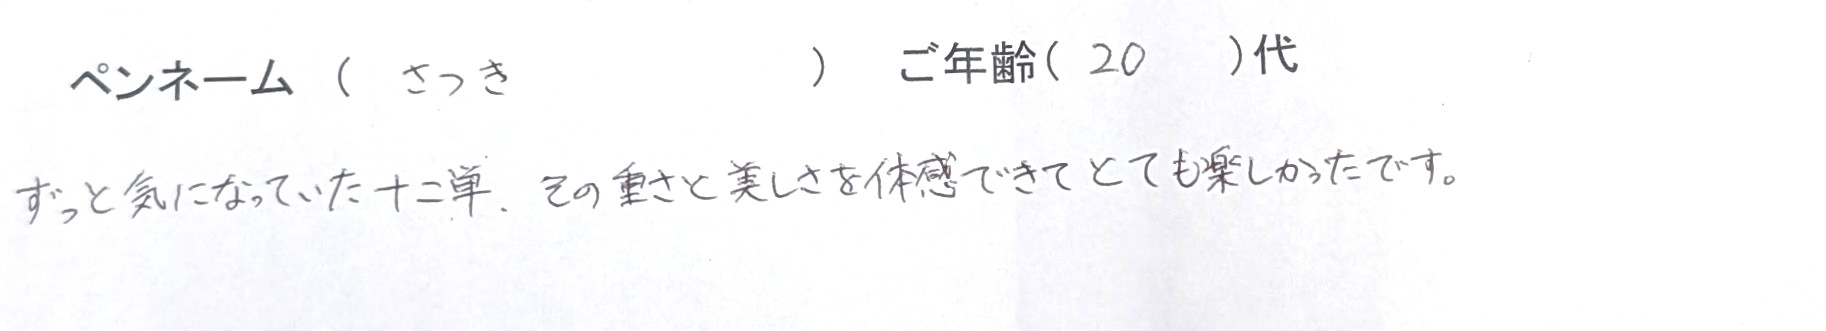 ペンネーム ( さつき ) ご年齢( 20 )代
ずっと気になっていた十二単、その重さと美しさを体感できてとても楽しかったです。